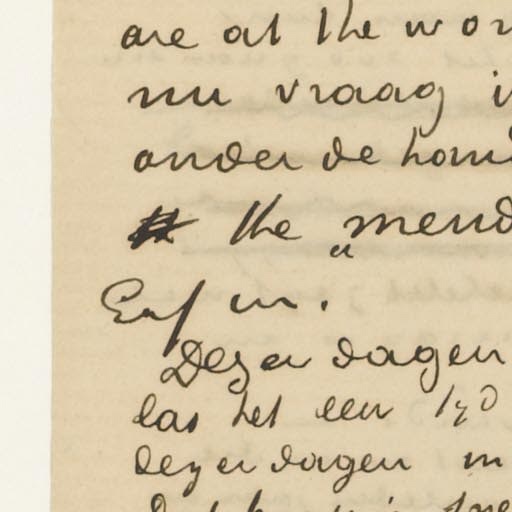 are at the wor
nu vraag i
onder de hom
the „mend
Enfin.
Dezer dagen
las het een
dezer dagen in